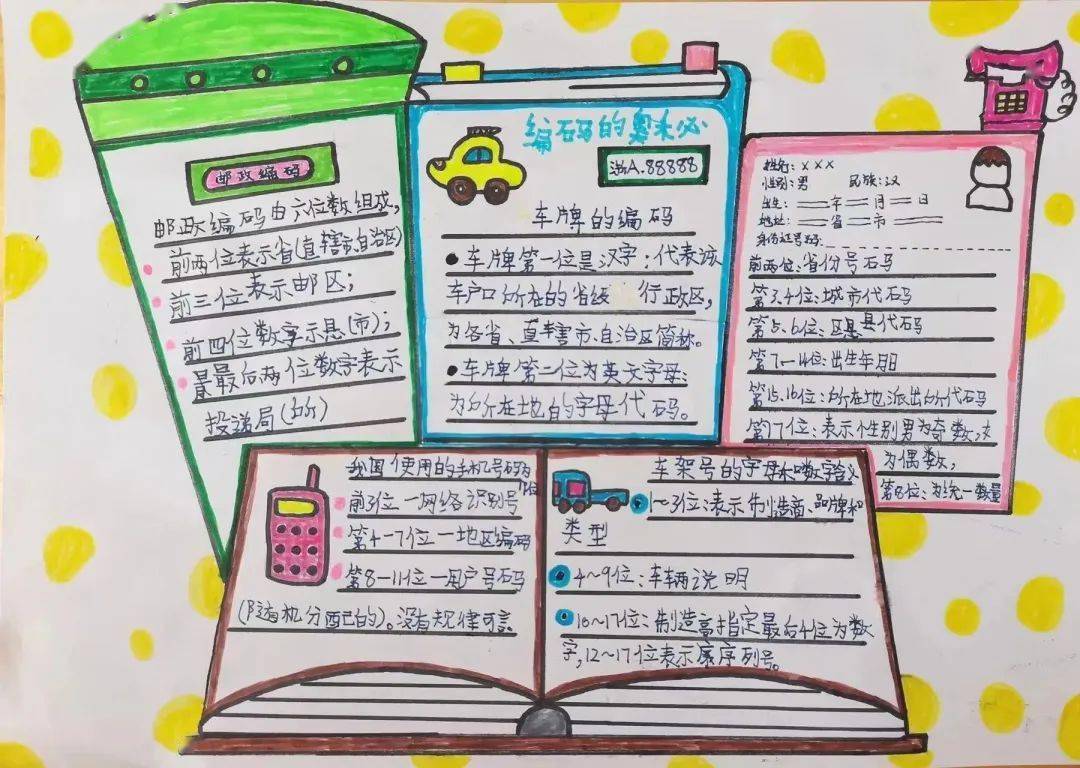 邮政编码
邮政编码由六位数组成,
前两位表示省(直辖市、自治区)
前三位表示邮区;
前四位数字示县(市);
最后两位数字表示
投递局(所)
编码的奥米必
浙A.88888
车牌的编码
车牌第一位是汉字:代表该
车户口所在的省级 行政区,
为各省、直辖市、自治区简称。
车牌第二位为英文字母:
为所在地的字母代码。
姓名:×××
性别:男 民族:汉
出生: 年 月 日
地址: 省 市
身份证号码:
前两位:省份号码
第3.4位:城市代码
第5.6位:区县代码
第7—14位:出生年月日
第15.16位:所在地派出所代码
第17位:表示性别男为奇数,女
为偶数,
我国使用的手机号码为
11位
前3位—网络识别号
第4—7位—地区编码
第8—11位—用户号码
(随机分配的)。没有规律可言
车架号的字母和数字含义
1~3位:表示制造商、品牌和
类型
4~9位:车辆说明
10~17位:制造商指定最后4位为数
字,12~17位表示序列号。